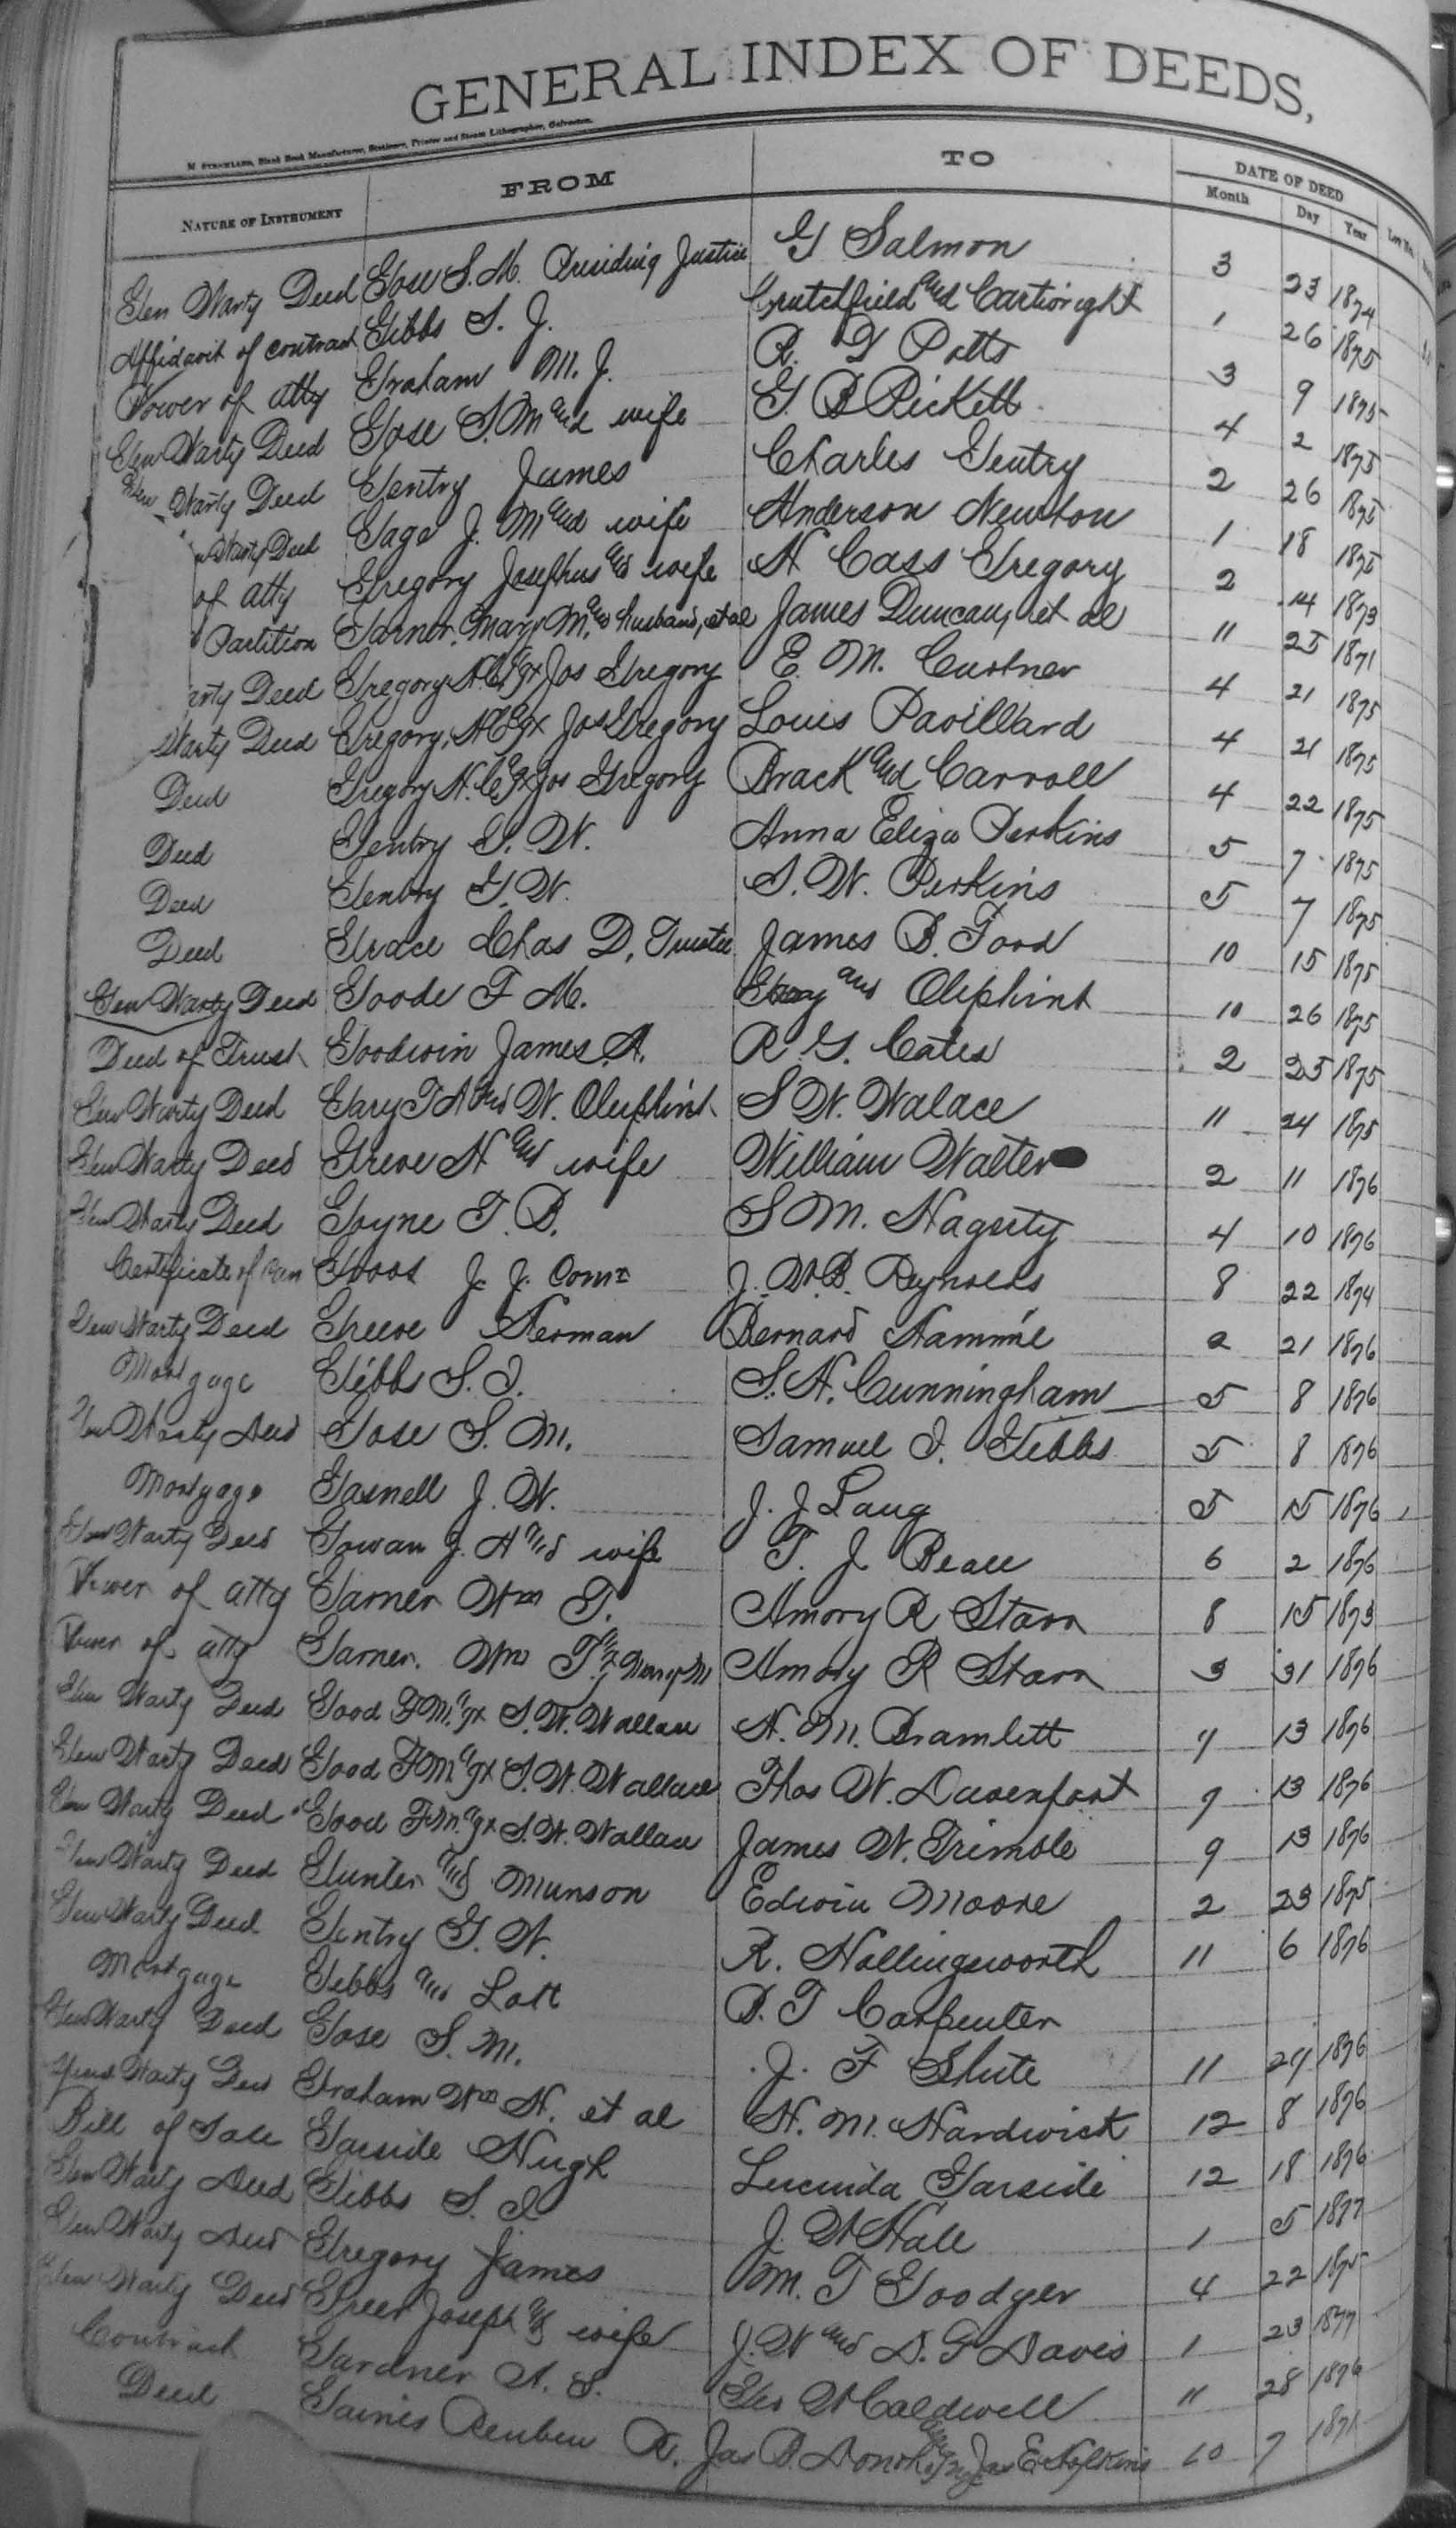 GENERAL INDEX OF DEEDS,
M. STRICKLAND, Blank Book Manufacturer, Stationer, Printer and Steam Lithographer, Galveston.
NATURE OF INSTRUMENT FROM TO DATE OF DEED
Month Day Year
Gen Warty Deed Gose S. M. Presiding Justice G Salmon 3 23 1874
Affidavit of contract Gibbs S. J. Crutchfield and Cartwright 1 26 1875
Power of atty Graham M. J. R. T Potts 3 9 1875
Gen Warty Deed Gose S. M and wife G. B Pickett 4 2 1875
Gen Warty Deed Gentry James Charles Gentry 2 26 1875
n Warty Deed Gage J. M and wife Anderson Newton 1 18 1875
of atty Gregory Josephus and wife N Cass Gregory 2 14 1873
Partition Garner, Mary M. and husband, et al James Duncan, et al 11 25 1871
arty Deed Gregory N. C Ex Jos Gregory E. M. Custner 4 21 1875
Warty Deed Gregory, N C Ex Jos Gregory Louis Pavillard 4 21 1875
Deed Gregory N. C Ex Jos Gregory Brack and Carroll 4 22 1875
Deed Gentry G. W. Anna Eliza Perkins 5 7 1875
Deed Gentry G. W. S. W. Perkins 5 7 1875
Deed Grace Chas D. Trustee James B. Good 10 15 1875
Gen Warty Deed Goode F M. and Oliphint 10 26 1875
Deed of Trust Goodwin James A. R. G. Cates 2 25 1875
Gen Warty Deed Gary T A and W. Oliphint S W. Walace 11 24 1875
Gen Warty Deed Greve H and wife William Walter 2 11 1876
Gen Warty Deed Goyne T. B. S M. Hagerty 4 10 1876
Certificate of Groos J. J. Comr J. W. B. Reynolds 8 22 1874
Gen Warty Deed Greeve Herman Bernard Hamme 2 21 1876
Mortgage Gibbs S. I. S. H. Cunningham 5 8 1876
Gen Warty Deed Gose S. M. Samuel I. Gibbs 5 8 1876
Mortgage Gasnell J. W. J. J Lang 5 15 1876
Gen Warty Deed Gowan J. A and wife T. J Beall 6 2 1876
Power of atty Garner Wm T. Amory R Starr 8 15 1873
Power of atty Garner. Wm T Amory R Starr 3 31 1876
Gen Warty Deed Good F M. S. W. Wallace H. M. Bramlett 9 13 1876
Gen Warty Deed Good F M. S. W. Wallace Thos W. Davenport 9 13 1876
Gen Warty Deed Good F M. S. W. Wallace James W. Trimble 9 13 1876
Gen Warty Deed Gunter and Munson Edwin Moore 2 23 1875
Gen Warty Deed Gentry G. W. R. Hollingsworth 11 6 1876
Mortgage Gibbs and Lott B. T Carpenter
Gen Warty Deed Gose S. M. J. F Shute 11 24 1876
Gen Warty Deed Graham Wm H. et al H. M. Hardwick 12 8 1876
Bill of Sale Garside Hugh Lucinda Garside 12 18 1876
Gen Warty Deed Gibbs S. I J. W Hall 1 5 1877
Gen Warty Deed Gregory James M. T Goodger 4 22 1875
Gen Warty Deed Greer Joseph and wife J. W and D. G Davis 1 23 1877
Contract Gardner A. S. Geo W Caldwell 11 28 1876
Deed Gaines Reuben R. Jas B. Jas E. Hopkins 10 7 1871